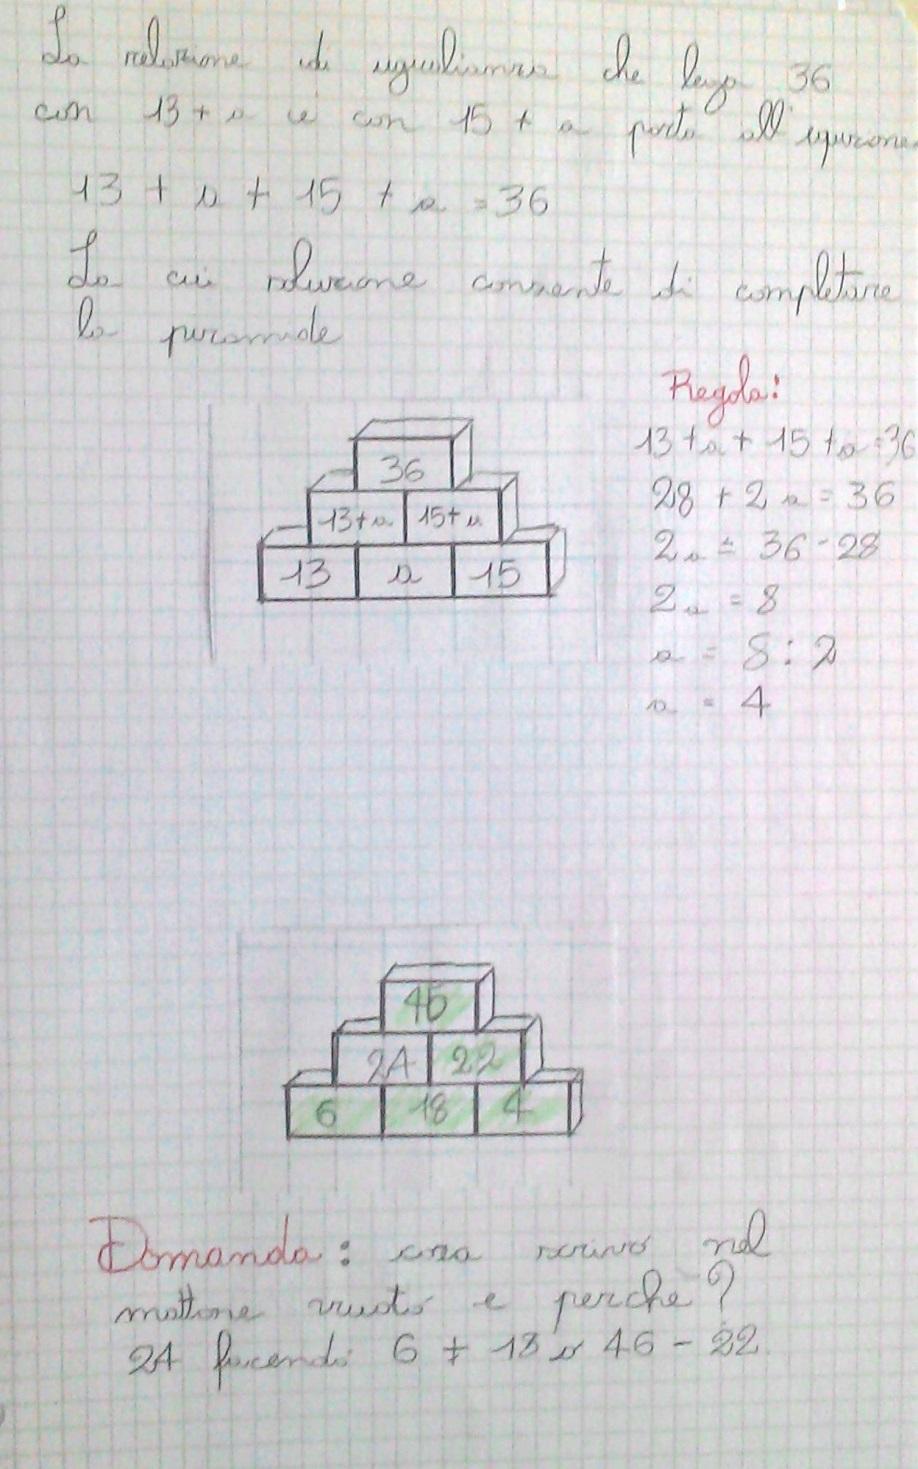 La relazione di uguaglianza che lega 36
con 13 + a e con 15 + a porta all'equazione
13 + a + 15 + a = 36
La cui soluzione consente di completare
la piramide
Regola:
13 + a + 15 + a = 36
28 + 2 a = 36
2a = 36 - 28
2a = 8
a = 8 : 2
a = 4
36
13+a 15+a
13 a 15
46
24 22
6 18 4
Domanda: cosa scrivo nel
mattone vuoto e perché?
24 facendo 6 + 18 o 46 - 22